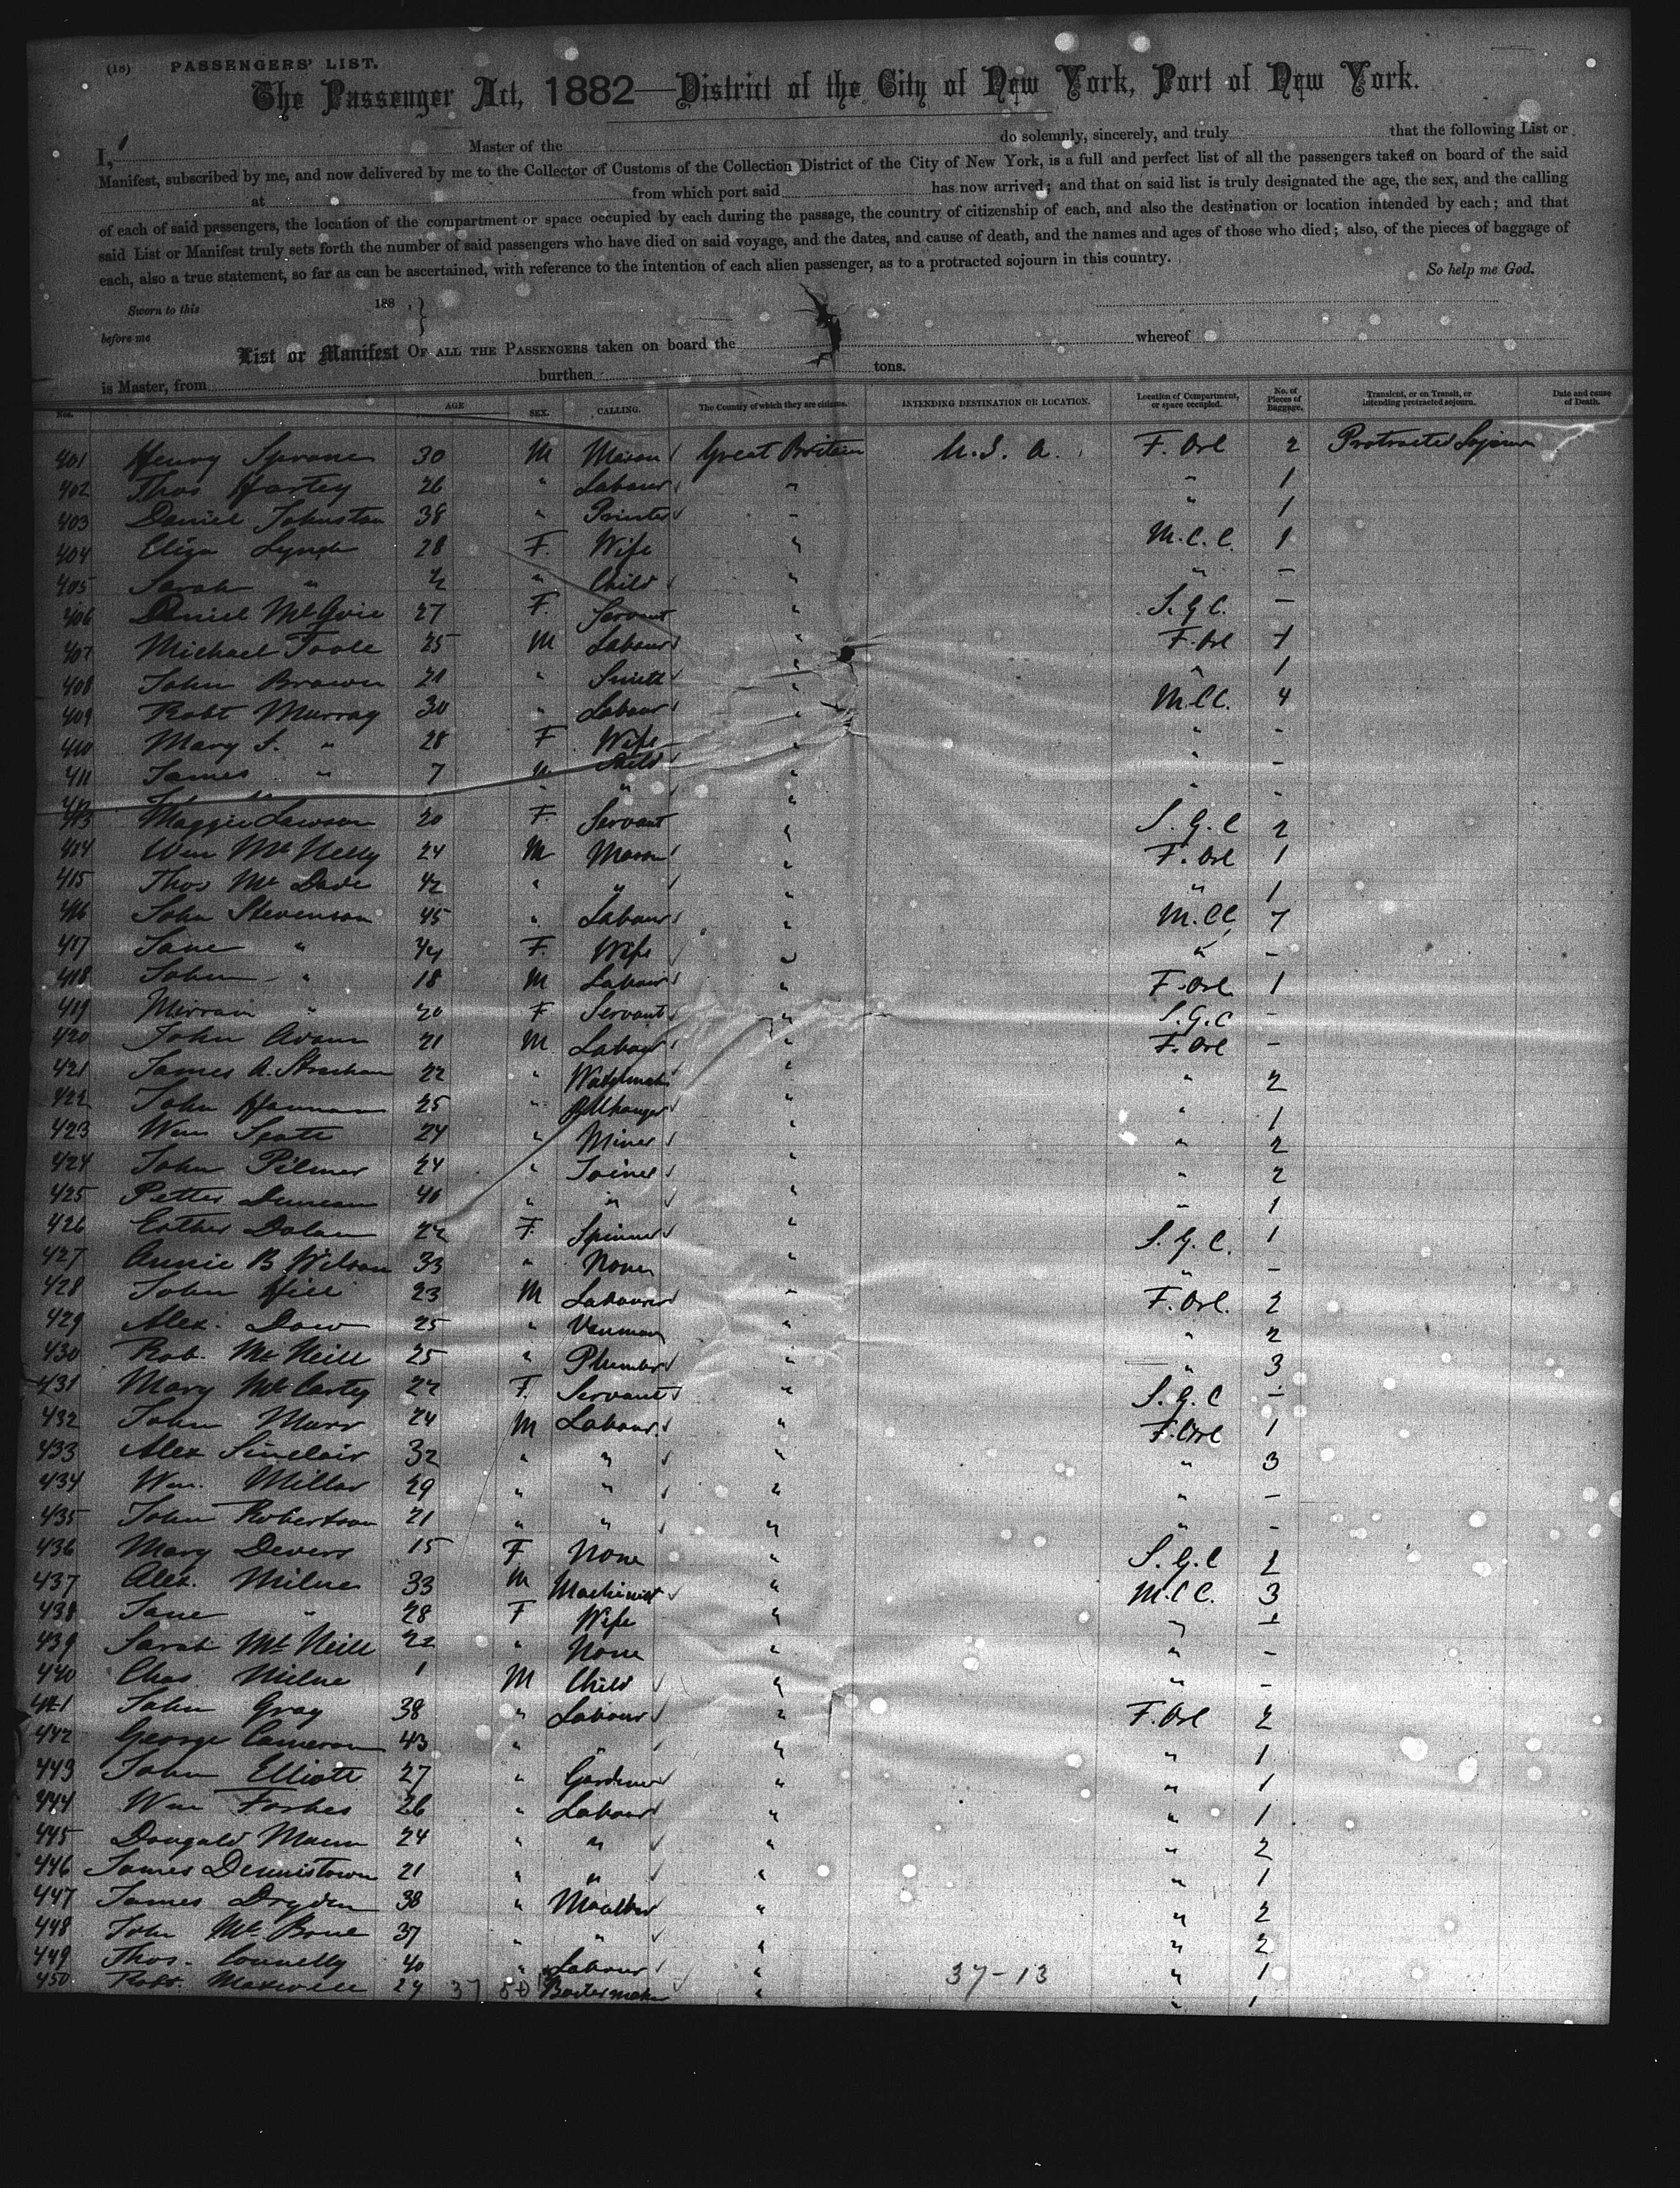 (18) PASSENGERS' LIST.
The Passenger Act, 1882—District of the City of New York, Port of New York.
I, Master of the do solemnly, sincerely, and truly that the following List or
Manifest, subscribed by me, and now delivered by me to the Collector of Customs of the Collection District of the City of New York, is a full and perfect list of all the passengers taken on board of the said
at from which port said has now arrived; and that on said list is truly designated the age, the sex, and the calling
of each of said passengers, the location of the compartment or space occupied by each during the passage, the country of citizenship of each, and also the destination or location intended by each; and that
said List or Manifest truly sets forth the number of said passengers who have died on said voyage, and the dates, and cause of death, and the names and ages of those who died; also, of the pieces of baggage of
each, also a true statement, so far as can be ascertained, with reference to the intention of each alien passenger, as to a protracted sojourn in this country. So help me God.
Sworn to this 188 ,}
before me
List or Manifest OF ALL THE PASSENGERS taken on board the whereof
is Master, from burthen tons.
Nos. AGE SEX. CALLING. The Country of which they are citizens. INTENDING DESTINATION OR LOCATION. Location of Compartment, or space occupied. No. of Pieces of Baggage. Transient, or on Transit, or intending protracted sojourn. Date and cause of Death.
401 Henry 30 M Mason Great Britain U.S.A. F. Orl 2 Protracted Sojourn
402 Thos Hartey 26 " Labour " " 1
403 Daniel Johnston 38 " Printer " " 1
404 Eliza Lynch 28 F. Wife " M.C.C. 1
405 Sarah " " Child " " -
406 Daniel 27 F. Servant " S.G.C. -
407 Michael Toole 25 M Labour " F. Orl 1
408 John Brown 21 " Smith " " 1
409 Robt Murray 30 " Labour " M.C.C. 4
410 Mary S. " 28 F Wife " " -
411 James " 7 M Child " " -
" " " " -
413 Maggie Lawson 20 F. Servant " S.G.C 2
414 Wm McNelly 24 M Mason " F. Orl 1
415 Thos McDade 42 " " " " 1
416 John Stevenson 45 " Labour " M.CC 7
417 Jane " 44 F. Wife " " -
418 John " 18 M Labour " F. Orl 1
419 Mirran " 20 F Servant " S.G.C -
420 John Adam 21 M Labour " F. Orl -
421 James A. Strachan 22 " " " 2
422 John Hannan 25 " Bellhanger " " 1
423 Wm 24 " Miner " " 2
424 John Pilmer 24 " Joiner " " 2
425 Petter Duncan 40 " " " " 1
426 Esther Dolan 22 F. Spinner " S.G.C. 1
427 Annie B Wilson 33 " None " " -
428 John Hill 23 M Labourer " F. Orl. 2
429 Alex. Dow 25 " Vanman " " 2
430 Rob. McNeill 25 " Plumber " " 3
431 Mary McCarty 22 F. Servant " S.G.C -
432 John Marr 24 M Labour " F. Orl 1
433 Alex Sinclair 32 " " " " 3
434 Wm. Millar 29 " " " " -
435 John Robertson 21 " " " " -
436 Mary Devers 15 F None " S.G.C 1
437 Alex. Milne 33 M Machinist " M.C.C. 3
438 Jane " 28 F Wife " "
439 Sarah McNeill 22 " None " " -
440 Chas. Milne 1 M Child " " -
441 John Gray 38 " Labour " F. Orl 2
442 George Cameron 43 " " " " 1
443 John Elliott 27 " Gardener " " 1
444 Wm Forbes 26 " Labour " " 1
445 Dougald Mann 24 " " " " 2
446 James Dennistown 21 " " " " 1
447 James Dryden 38 " Moulder " " 2
448 John McBone 37 " " " " 2
449 Thos. Connelly 40 " Labour " " 1
450 Robt. Maxwell 29 37 Boilermaker " 37-13 " 1